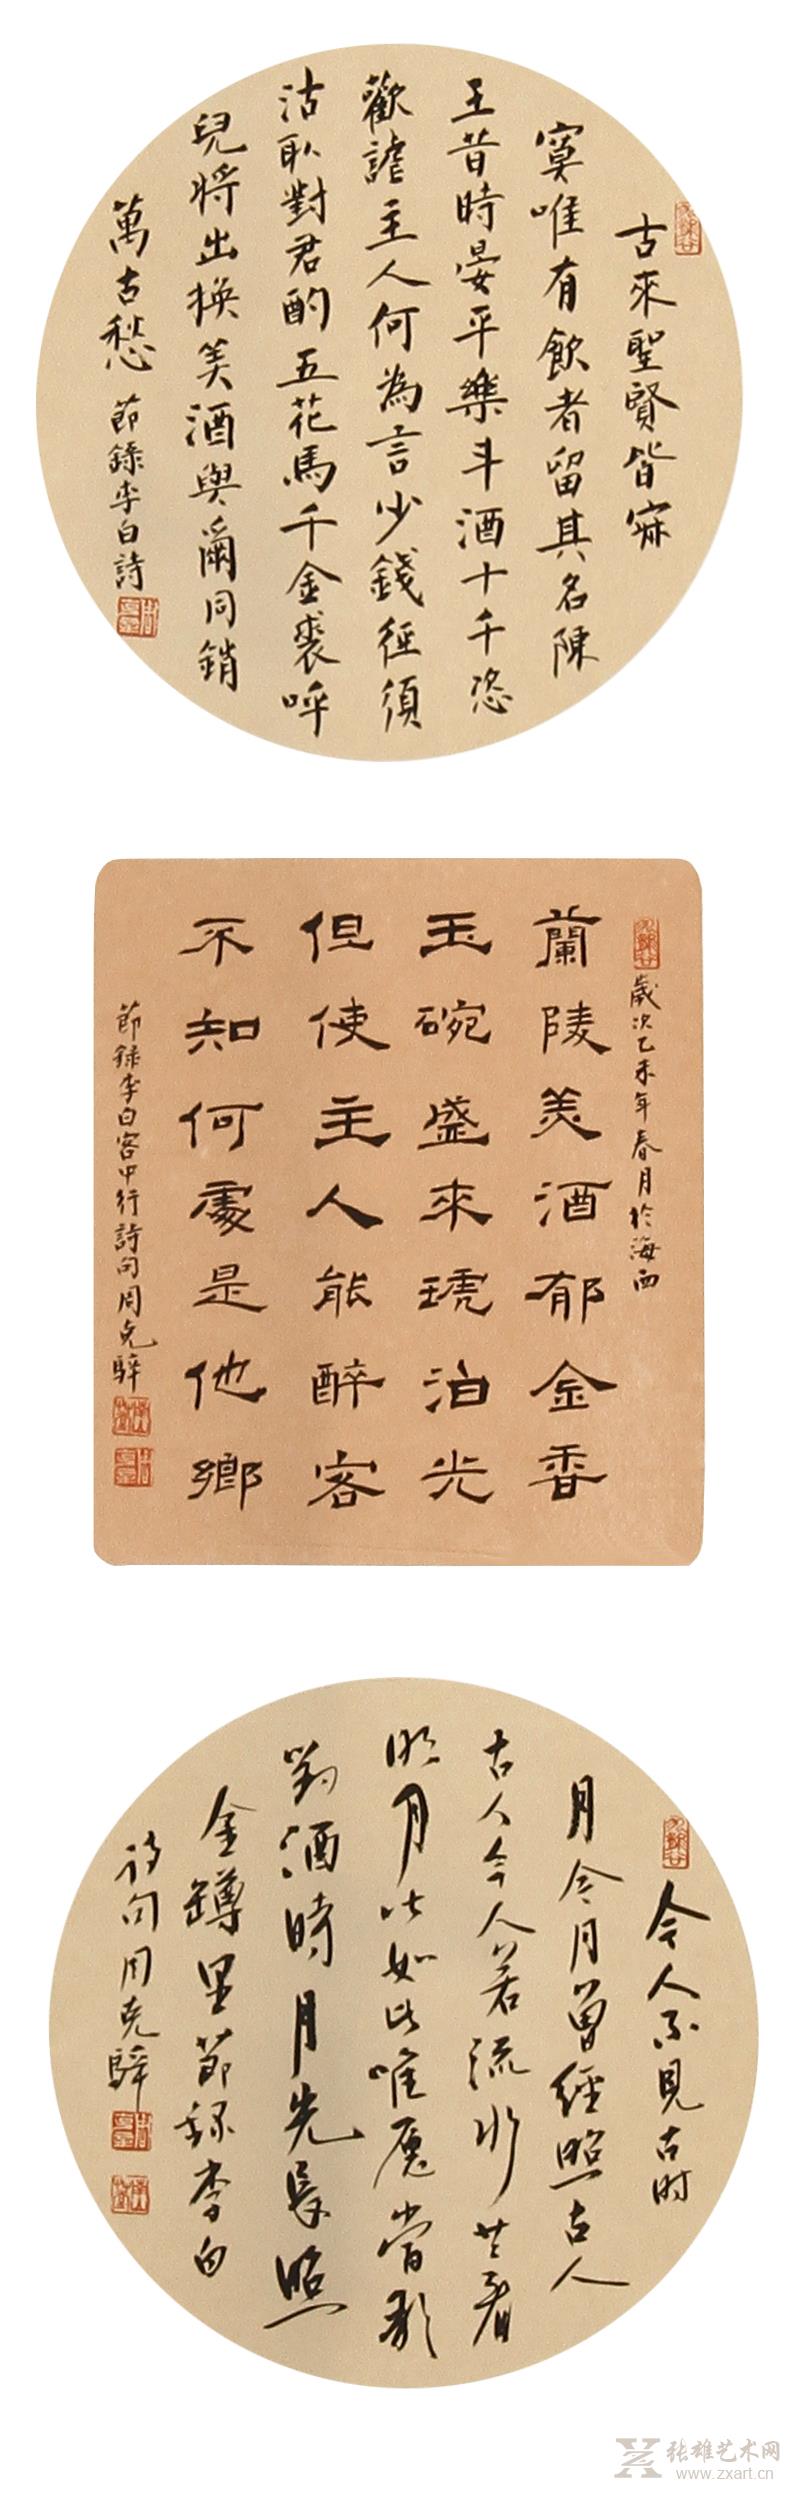 古來聖賢皆寂
寞唯有飲者留其名陳
王昔時宴平樂斗酒十千恣
歡謔主人何為言少錢徑須
沽取對君酌五花馬千金裘呼
兒將出換美酒與爾同銷
萬古愁 節錄李白詩
歲次乙未年春月於海西
蘭陵美酒郁金香
玉碗盛來琥泊光
但使主人能醉客
不知何處是他鄉
節錄李白客中行詩句周克驊
今人不見古時
月今月曾經照古人
古人今人若流水共看
明月皆如此唯愿當歌
對酒時月光長照
金罇里節錄李白
詩句周克驊
张雄艺术网
www.zxart.cn